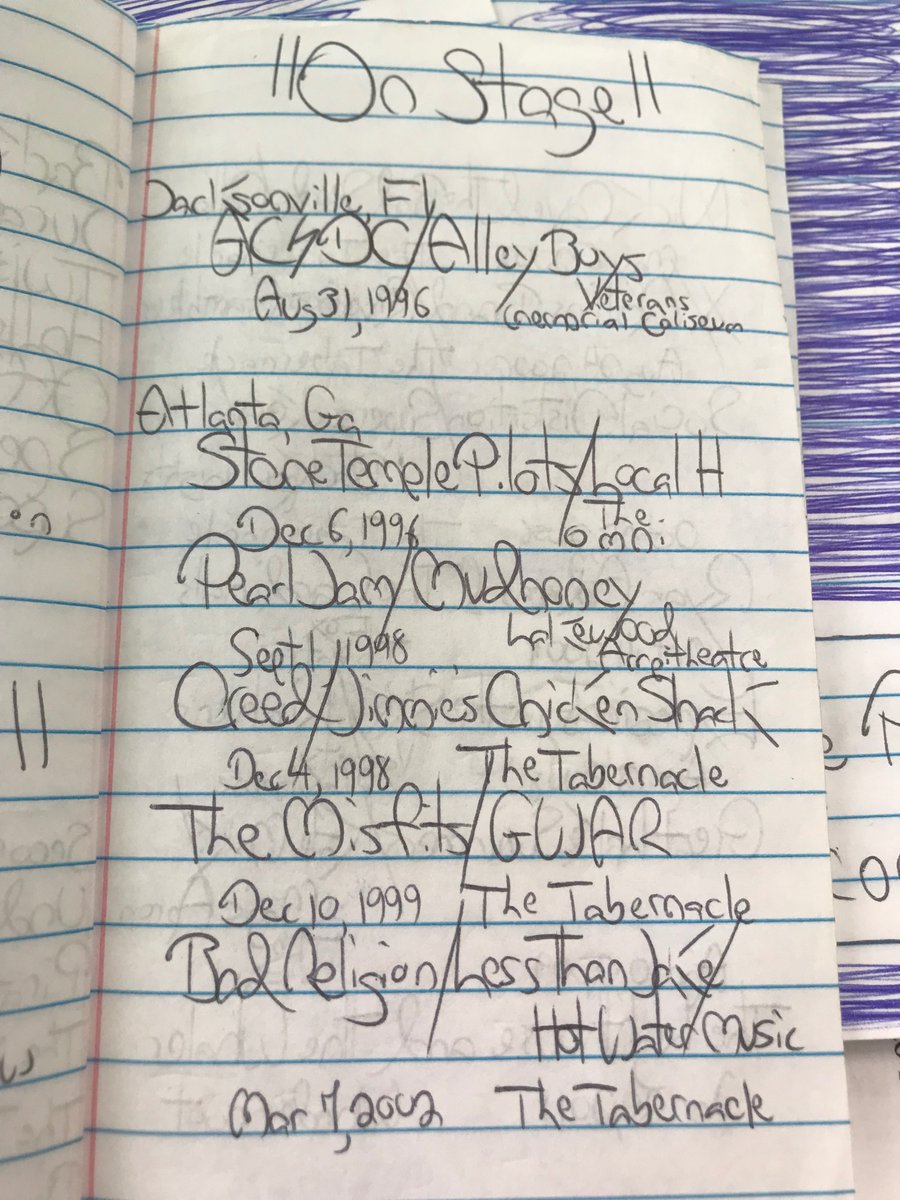 "On Stage"
Jacksonville, Fl
AC⚡DC/Alley Boys
Aug 31, 1996 Veterans
Memorial Coliseum
Atlanta, Ga
Stone Temple Pilots/Local H
Dec 6, 1996 The
Omni
Pearl Jam/Mudhoney
Sept 1, 1998 Lakewood
Ampitheatre
Creed/Jimmie's Chicken Shack
Dec 4, 1998 The Tabernacle
The Misfits/GWAR
Dec 10, 1999 The Tabernacle
Bad Religion/Less Than Jake/
Hot Water Music
Mar 7, 2002 The Tabernacle